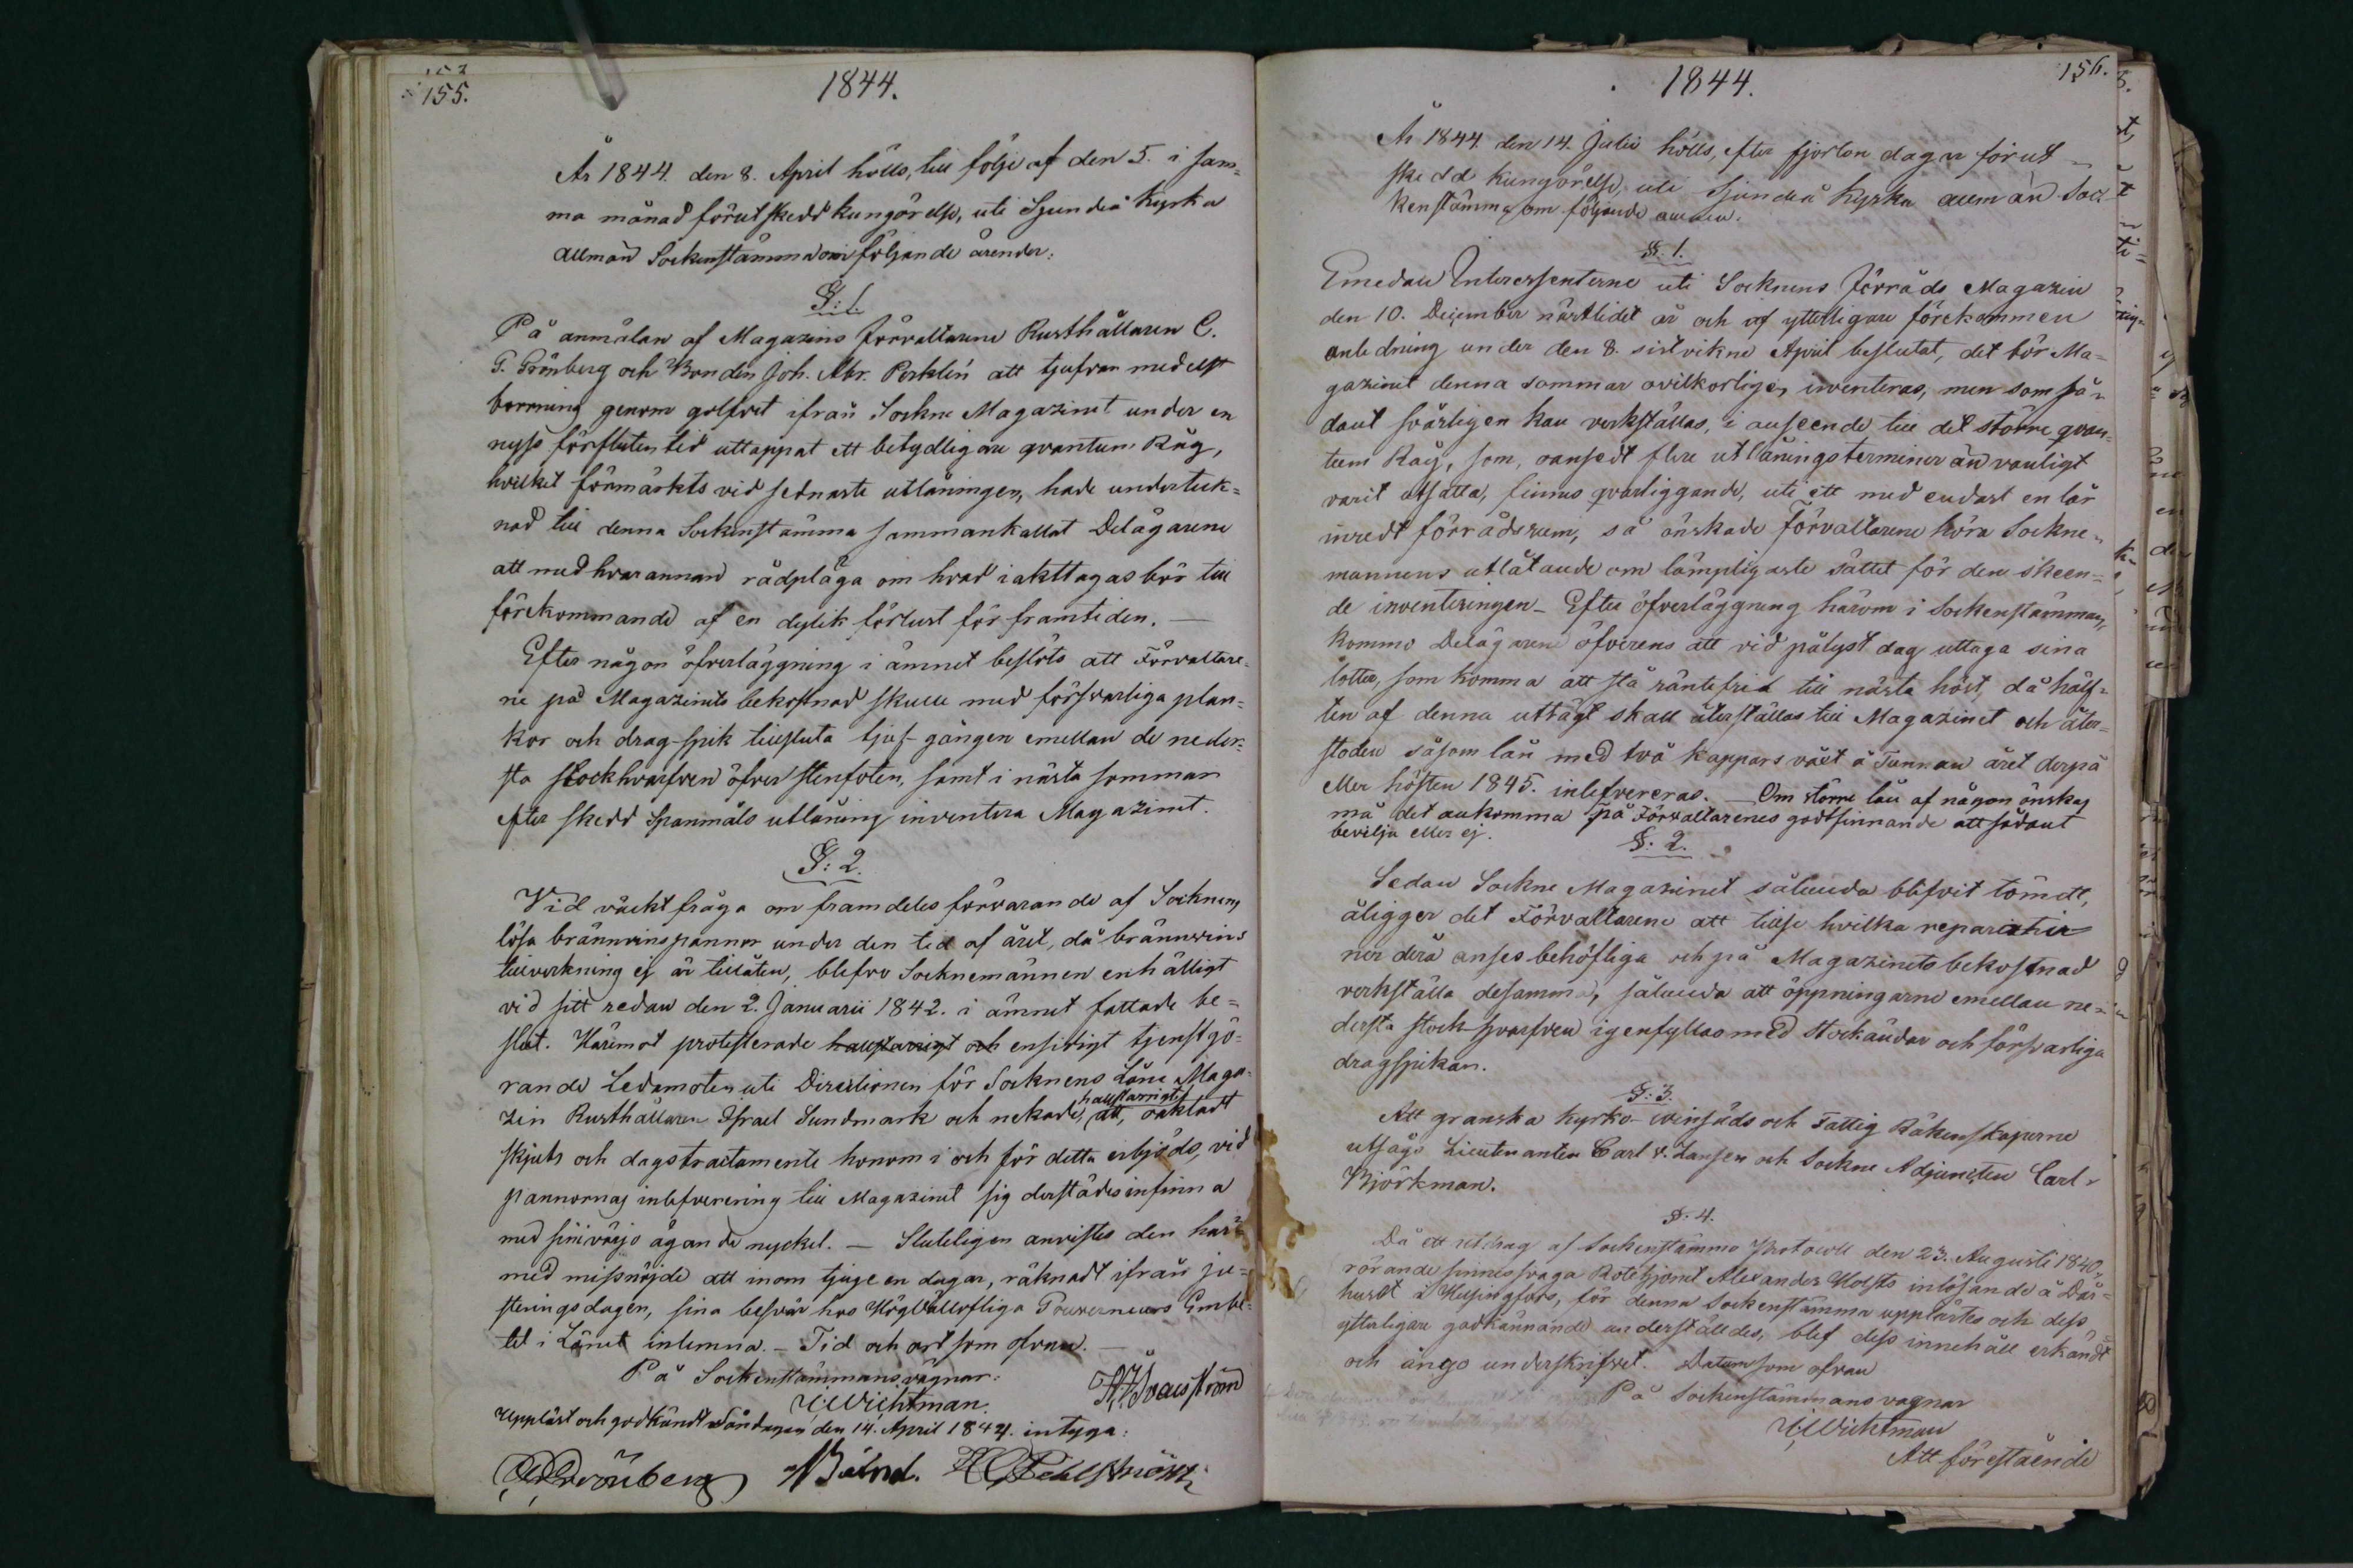 155.
1844.
År 1844. den 8. April hölls, till följe af den 5. i sam=
ma månad förut skedd kungörelse, uti Sjundeå Kyrka
allmän Sockenstämma om följande ärender:
§: 1.
På anmälan af Magazins Förvaltarene Rusthållaren C.
G. Grönberg och Bonden Joh. Abr. Perklén att tjufvar medelst
borrning genom golfvet ifrån Sockne Magazinet under en
nyss förfluten tid uttappat ett betydligare qvantum Råg,
hvilket förmärkts vid sednaste utlåningen, hade underteck=
nad till denna Sockenstämma sammankallat Delägarene
att med hvarannan rådpläga om hvad iakttagas bör till
förekommande af en dylik förlust för framtiden. —
Efter någon öfverläggning i ämnet beslöts att Förvaltare=
ne på Magazinets bekostnad skulle med försvarliga plan=
kor och drag-spik tillsluta tjuf-gången emellan de neder=
sta stockhvarfven öfver stenfoten, samt i nästa sommar
efter skedd Spanmåls utlåning inventera Magazinet.
§: 2.
Vid väckt fråga om framdeles förvarande af Socknens
lösa brännvinspannor under den tid af året, då brännvins
tillverkning ej är tillåten, blefvo Socknemännen enhälligt
vid sitt redan den 2. Januarii 1842. i ämnet fattade be=
slut. Häremot protesterade halsstarrigt och ensidigt tjenstgö=
rande Ledamoten uti Directionen för Socknens Låne Maga=
zin Rusthållaren Israel Sundmark och nekade, halsstarrigtl att, oaktadt
skjuts och dagstractamente honom i och för detta erbjöds, vid
pannornas inlefverering till Magazinet sig derstädes infinna
med sin i värjo ägande nyckel. — Sluteligen anvistes den här=
med missnöjde att inom tjugu en dagar, räknadt ifrån ju=
steringsdagen, sina besvär hos Höglofliga Gouverneurs Embe=
tet i Länet inlemna. — Tid och ort som ofvan. —
På Sockenstämmans vägnar:
Wichtman.
Uppläst och godkändt Söndagen den 14. April 1844. intyga:
Grönberg
156.
1844.
År 1844. den 14. Julii hölls, efter fjorton dagar förut
skedd kungörelse, uti Sjundeå Kyrka allmän Soc=
kenstämma om följande ämnen.
§. 1.
Emedan Interessenterne uti Socknens Förråds Magazin
den 10. December nästlidet år och af ytterligare förekommen
anledning under den 8. sistvikne April beslutat, det bör Ma=
gazinet denna sommar ovilkorligen inventeras, men som så=
dant svårligen kan verkställas, i anseende till det större qvan=
tum Råg, som, oansedt flere utlåningsterminer än vanligt
varit utsatta, finnes qvarliggande, uti ett med endast en lår
inredt förrådsrum, så önskade Förvaltarene höra Sockne=
mannens utlåtande om lämpligaste sättet för den skeen=
de inventeringen — Efter öfverläggning härom i Sockenstämman,
kommo Delägarene öfverens att vid pålyst dag uttaga sina
lotter, som komma att stå räntefria till nästa höst, då hälf=
ten af denna uttagt skall återställas till Magazinet och åter=
stoden såsom lån med två kappars växt å Tunnan året derpå
eller hösten 1845. inlefvereras. — Om större lån af någon önskas
må det ankomma på Förvaltarenes godtfinnande att sådant
bevilja eller ej.
§. 2.
Sedan Sockne Magazinet sålunda blifvit tömdt,
åligger det Förvaltarene att tillse hvilka reparatio
ner derå anses behöfliga och på Magazinets bekostnad
verkställa desamma, sålunda att öppningarne emellan ne=
dersta stock-hvarfven igenfyllas med stockändar och försvarliga
dragspikar.
§: 3.
Att granska Kyrko- Vinsäds och Fattig Räkenskaperne
utsågs Lieutenanten Carl v. Jansen och Sockne Adjuncten Carl
Björkman.
§. 4.
Då ett utdrag af Sockenstämmo Protocoll den 23. Augusti 1840,
rörande sinnessvaga Rotebjomt Alexander Holsts inlösande å Dår=
huset i Helsingfors, för denna Sockenstämma upplästes och dess
ytterligare godkännande underställdes, blef dess innehåll erkändt
och ängo underskrifvet. Datum som ofvan
På Sockenstämmans vägnar
Wichtman
Att förestående